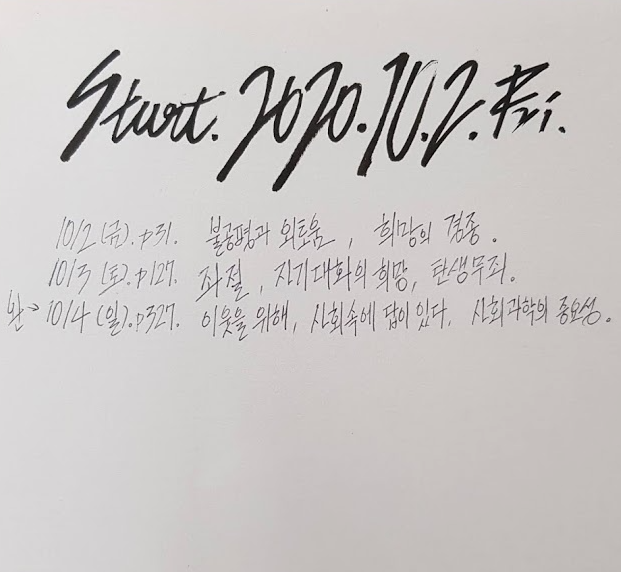 Start. 2020. 10. 2. Fri.
10/2 (금). p31. 불공평과 외로움, 희망의 경종.
10/3 (토). p127. 좌절, 자기대화의 희망, 탄생무죄.
완→ 10/4 (일). p327. 이웃을 위해, 사회속에 답이 있다, 사회과학의 중요성.